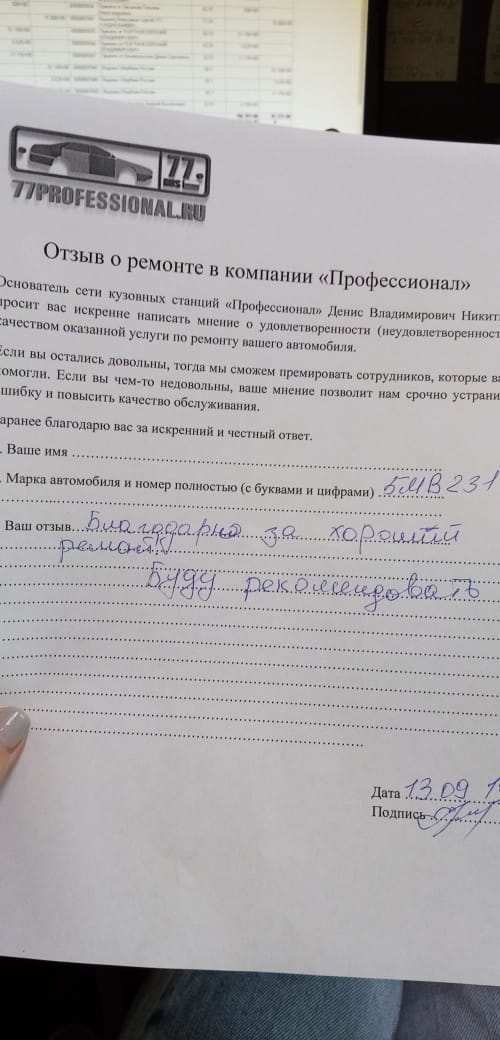 77
77PROFESSIONAL.RU
Отзыв о ремонте в компании «Профессионал»
Основатель сети кузовных станций «Профессионал» Денис Владимирович Никит
просит вас искренне написать мнение о удовлетворенности (неудовлетворенност
качеством оказанной услуги по ремонту вашего автомобиля.
Если вы остались довольны, тогда мы сможем премировать сотрудников, которые ва
помогли. Если вы чем-то недовольны, ваше мнение позволит нам срочно устрани
шибку и повысить качество обслуживания.
аранее благодарю вас за искренний и честный ответ.
. Ваше имя
. Марка автомобиля и номер полностью (с буквами и цифрами) БМВ 231
Ваш отзыв Благодарна за хороший
ремонт
Буду рекомендовать
Дата 13 09 1
Подпись